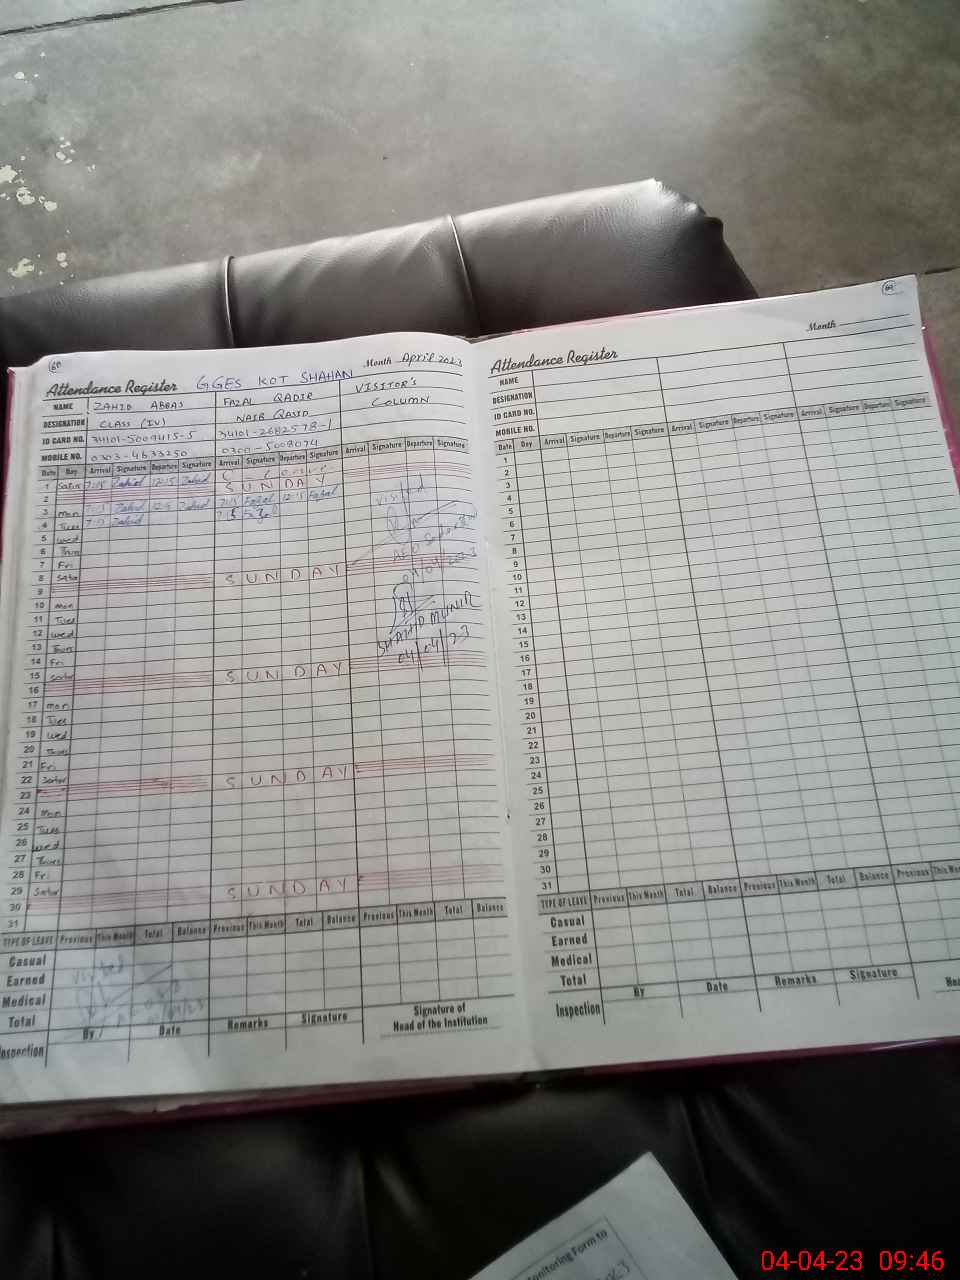 60
Month April 2023
Attendance Register GGES KOT SHAHAN
NAME ZAHID ABBAS FAZAL QADIR VISITOR'S
DESIGNATION CLASS (IV) NAIB QASID COLUMN
ID CARD NO. 34101-5009415-5 34101-2682578-1
MOBILE NO. 0303-4633250 0300-5008074
Date Day Arrival Signature Departure Signature Arrival Signature Departure Signature Arrival Signature Departure Signature
1 Satur 7:15 Zahid 12:15 Zahid
2 SUNDAY
3 Mon 7:15 Zahid Zahid 7:15 Fazal 12:15 Fazal
4 Tues 7:15 Zahid 7:15
5 Wed visited
6 Thurs
7 Fri
8 Satur AEO
9 SUNDAY 04/04/2023
10 Mon
11 Tues
12 Wed
13 Thurs SHAHID MUNIR
14 Fri 04/04/23
15 Satur
16 SUNDAY
17 Mon
18 Tues
19 Wed
20 Thurs
21 Fri
22 Satur
23 SUNDAY
24 Mon
25 Tues
26 Wed
27 Thurs
28 Fri
29 Satur
30 SUNDAY
31
TYPE OF LEAVE Previous This Month Total Balance Previous This Month Total Balance Previous This Month Total Balance
Casual
Earned visited
Medical
Total
Inspection By Date Remarks Signature Signature of
Head of the Institution
Month
Attendance Register
NAME
DESIGNATION
ID CARD NO.
MOBILE NO.
Date Day Arrival Signature Departure Signature Arrival Signature Departure Signature Arrival Signature Departure Signature
1
2
3
4
5
6
7
8
9
10
11
12
13
14
15
16
17
18
19
20
21
22
23
24
25
26
27
28
29
30
31
TYPE OF LEAVE Previous This Month Total Balance Previous This Month Total Balance Previous This Month
Casual
Earned
Medical
Total
Inspection By Date Remarks Signature
onitoring Form to
04-04-23 09:46